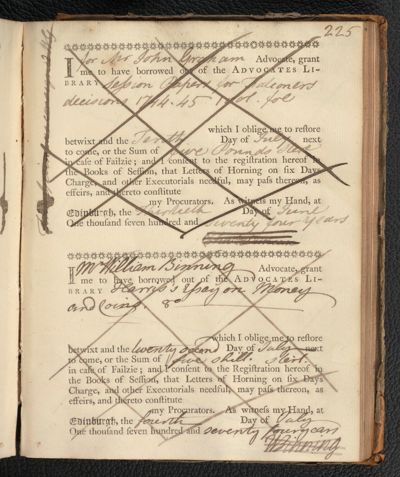 225
I for Mr John Graham Advocate, grant
me to have borrowed out of the ADVOCATES LI-
BRARY Session Papers for Falconers
decisions 1744.45 1 vol. fol
which I oblige me to restore
betwixt and the Tenth Day of July next
to come, or the Sum of five Pounds Sterl
in case of Failzie; and I consent to the registration hereof in
the Books of Session, that Letters of Horning on six Days
Charge, and other Executorials needful, may pass thereon, as
effeirs, and thereto constitute
my Procurators. As witness my Hand, at
Edinburgh, the Day of June
One thousand seven hundred and seventy four Years
I Mr William Binning Advocate, grant
me to have borrowed out of the ADVOCATES LI-
BRARY Harris's Essay on Money
and Coins 8o
which I oblige me to restore
betwixt and the twenty second Day of July next
to come, or the Sum of five shill. Sterl.
in case of Failzie; and I consent to the Registration hereof in
the Books of Session, that Letters of Horning on six Days
Charge, and other Executorials needful, may pass thereon, as
effeirs, and thereto constitute
my Procurators. As witness my Hand, at
Edinburgh, the fourth Day of July
One thousand seven hundred and seventy four years
W Binning